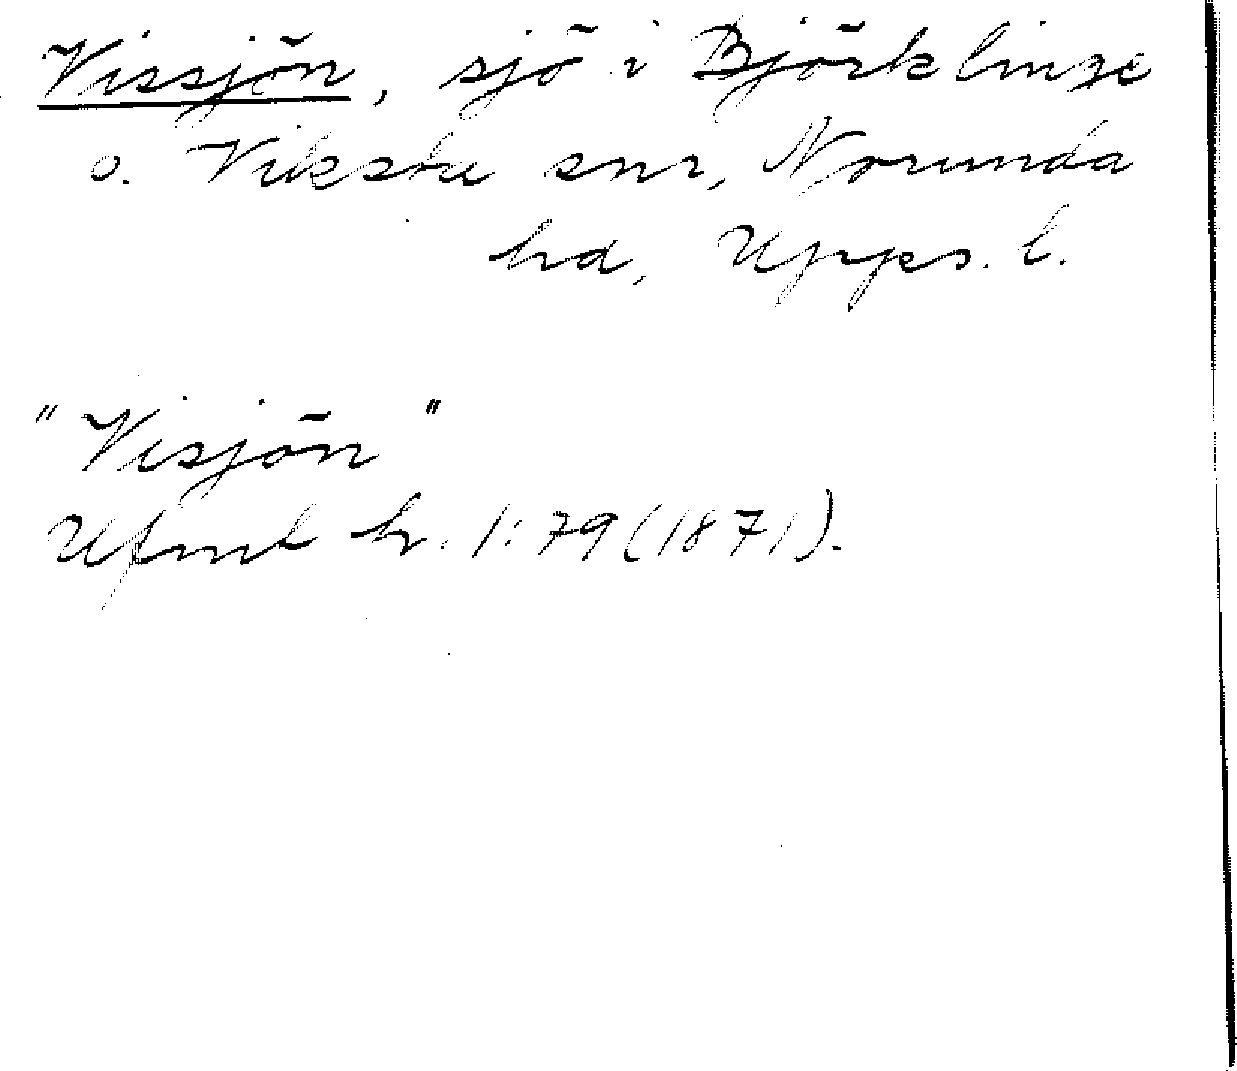 Vissjön, sjö i Björklinge
o. Viksta snr, Norunda
hd, Upps. l.
"Visjön"
Ufmt h. 1:79 (1871).